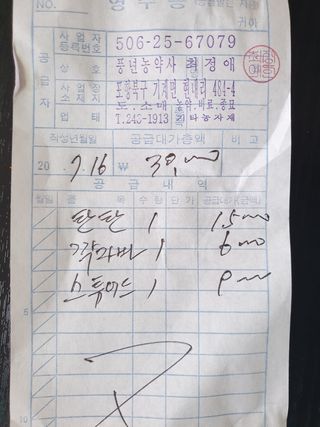 NO. 영수증 (공급받는 자용)
귀하
공급자
사업자 등록번호 506-25-67079
상호 풍년농약사 최정애
사업장 소재지 포항북구 기계면 현내리 484-4
업태 도.소매 농약.비료.종묘
T.243-1913 기타농자재
작성년월일 공급대가총액 비고
20 . 7.16 ₩ 30,000
공급내역
월일 품목 수량 단가 공급대가(금액)
탄탄 1 15000
1 6000
1 9000
5
10